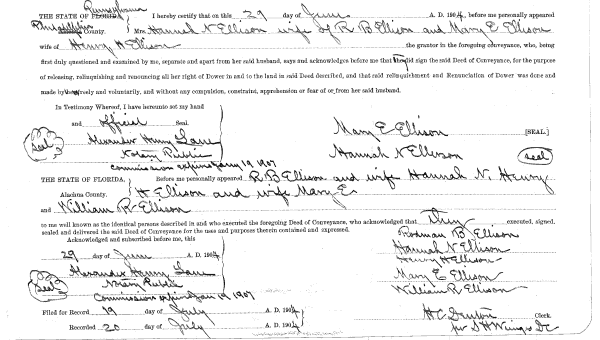 Pennsylvania
THE STATE OF FLORIDA, I hereby certify that on this 29 day of June A. D. 1904, before me personally appeared
Philadelphia County. Mrs. Hannah N Ellison wife of R B Ellison and Mary E Ellison
wife of Henry H Ellison the grantor in the foregoing conveyance, who, being
first duly questioned and examined by me, separate and apart from her said husband, says and acknowledges before me that they did sign the said Deed of Conveyance, for the purpose
of releasing, relinquishing and renouncing all her right of Dower in and to the land in said Deed described, and that said relinquishment and Renunciation of Dower was done and
made by them freely and voluntarily, and without any compulsion, constraint, apprehension or fear of or from her said husband.
In Testimony Whereof, I have hereunto set my hand
and official Seal.
Seal Alexander Henry Lane
Notary Public
Commission expires Jany 19 1907
Mary E Ellison [SEAL.]
Hannah N Ellison seal
THE STATE OF FLORIDA, Before me personally appeared R B Ellison and wife Hannah N. Henry
Alachua County. H Ellison and wife Mary E.
and William R Ellison
to me well known as the identical persons described in and who executed the foregoing Deed of Conveyance, who acknowledged that they executed, signed,
sealed and delivered the said Deed of Conveyance for the uses and purposes therein contained and expressed.
Acknowledged and subscribed before me, this
29 day of June A. D. 1904
Seal Alexander Henry Lane
Notary Public
Commission expires Jan 19 1907
Rodman B Ellison
Hannah N Ellison
Henry H Ellison
Mary E Ellison
William R Ellison
Filed for Record 19 day of July A. D. 1904
Recorded 20 day of July A. D. 1904
H C Denton Clerk.
per S H Wienges DC